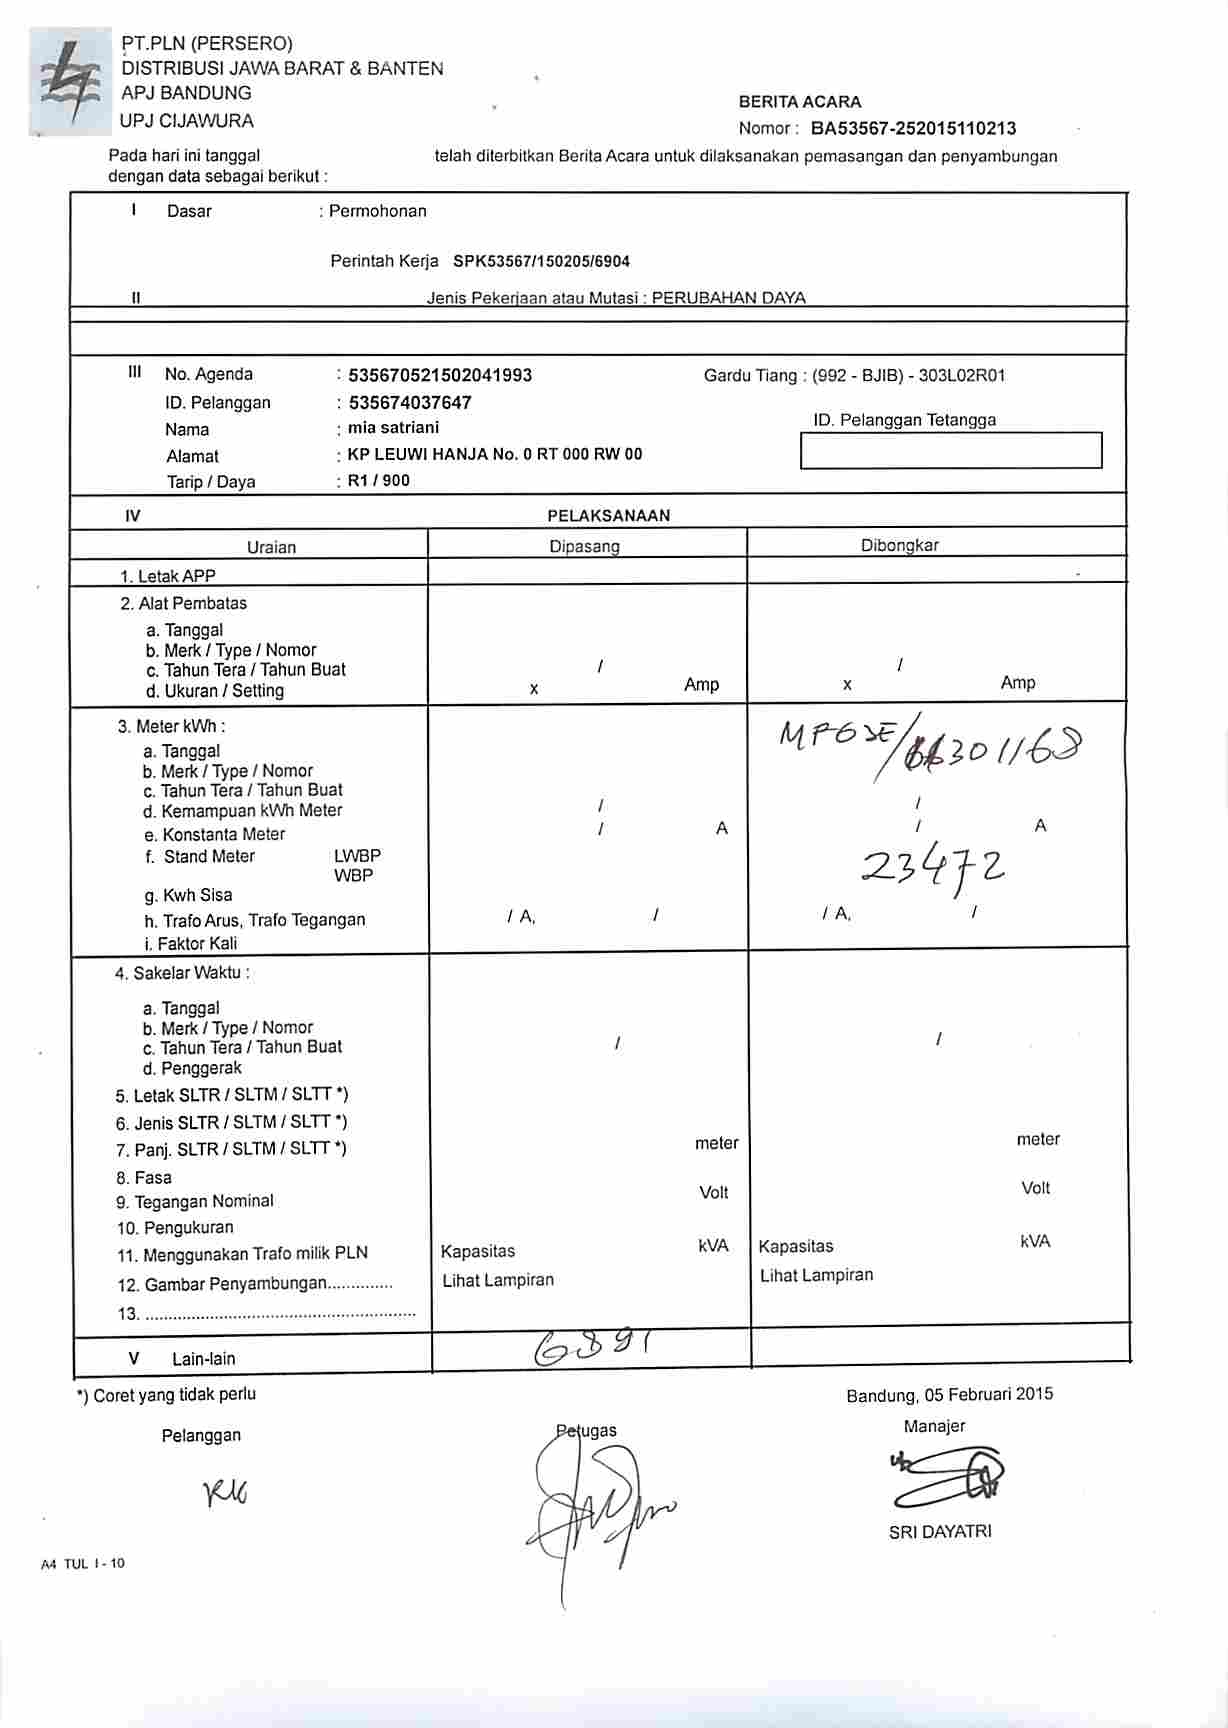 PT.PLN (PERSERO)
DISTRIBUSI JAWA BARAT & BANTEN
APJ BANDUNG
UPJ CIJAWURA
BERITA ACARA
Nomor : BA53567-252015110213
Pada hari ini tanggal telah diterbitkan Berita Acara untuk dilaksanakan pemasangan dan penyambungan
dengan data sebagai berikut :
I Dasar : Permohonan
Perintah Kerja SPK53567/150205/6904
II Jenis Pekerjaan atau Mutasi : PERUBAHAN DAYA
III No. Agenda : 535670521502041993 Gardu Tiang : (992 - BJIB) - 303L02R01
ID. Pelanggan : 535674037647
ID. Pelanggan Tetangga
Nama : mia satriani
Alamat : KP LEUWI HANJA No. 0 RT 000 RW 00
Tarip / Daya : R1 / 900
IV PELAKSANAAN
Uraian Dipasang Dibongkar
1. Letak APP
2. Alat Pembatas
a. Tanggal
b. Merk / Type / Nomor
c. Tahun Tera / Tahun Buat / /
d. Ukuran / Setting x Amp x Amp
3. Meter kWh :
a. Tanggal
b. Merk / Type / Nomor
c. Tahun Tera / Tahun Buat
d. Kemampuan kWh Meter / /
e. Konstanta Meter / A / A
f. Stand Meter LWBP 23472
WBP
g. Kwh Sisa
h. Trafo Arus, Trafo Tegangan / A, / / A, /
i. Faktor Kali
4. Sakelar Waktu :
a. Tanggal
b. Merk / Type / Nomor
c. Tahun Tera / Tahun Buat / /
d. Penggerak
5. Letak SLTR / SLTM / SLTT *)
6. Jenis SLTR / SLTM / SLTT *)
7. Panj. SLTR / SLTM / SLTT *) meter meter
8. Fasa
9. Tegangan Nominal Volt Volt
10. Pengukuran
11. Menggunakan Trafo milik PLN Kapasitas kVA Kapasitas kVA
12. Gambar Penyambungan.............. Lihat Lampiran Lihat Lampiran
13. ..........................................................
V Lain-lain 6891
*) Coret yang tidak perlu Bandung, 05 Februari 2015
Pelanggan Petugas Manajer
SRI DAYATRI
A4 TUL I - 10